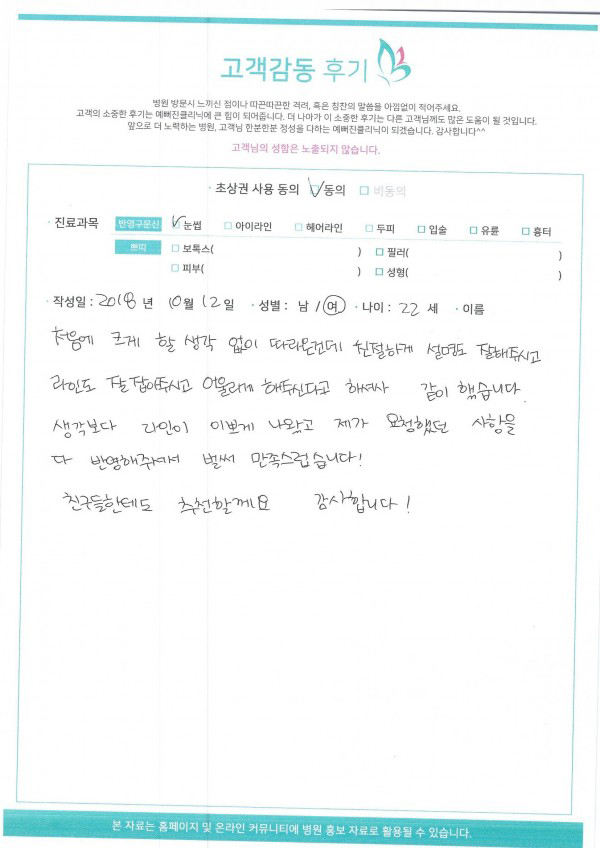 고객감동 후기
병원 방문시 느끼신 점이나 따끈따끈한 격려, 혹은 칭찬의 말씀을 아낌없이 적어주세요.
고객의 소중한 후기는 예뻐진클리닉에 큰 힘이 되어줍니다. 더 나아가 이 소중한 후기는 다른 고객님께도 많은 도움이 될 것입니다.
앞으로 더 노력하는 병원, 고객님 한분한분 정성을 다하는 예뻐진클리닉이 되겠습니다. 감사합니다^^
고객님의 성함은 노출되지 않습니다.
· 초상권 사용 동의 ☑ 동의 □ 비동의
· 진료과목 반영구문신 ☑ 눈썹 □ 아이라인 □ 헤어라인 □ 두피 □ 입술 □ 유륜 □ 흉터
쁘띠 □ 보톡스( ) □ 필러( )
□ 피부( ) □ 성형( )
· 작성일 : 2018 년 10월 12일 · 성별 : 남 / 여 · 나이 : 22 세 · 이름
처음에 크게 할 생각 없이 따라온건데 친절하게 설명도 잘해주시고
라인도 잘 잡아주시고 어울리게 해주신다고 하셔서 같이 했습니다.
생각보다 라인이 이쁘게 나왔고 제가 요청했던 사항을
다 반영해주셔서 벌써 만족스럽습니다!
친구들한테도 추천할께요 감사합니다!
본 자료는 홈페이지 및 온라인 커뮤니티에 병원 홍보 자료로 활용될 수 있습니다.